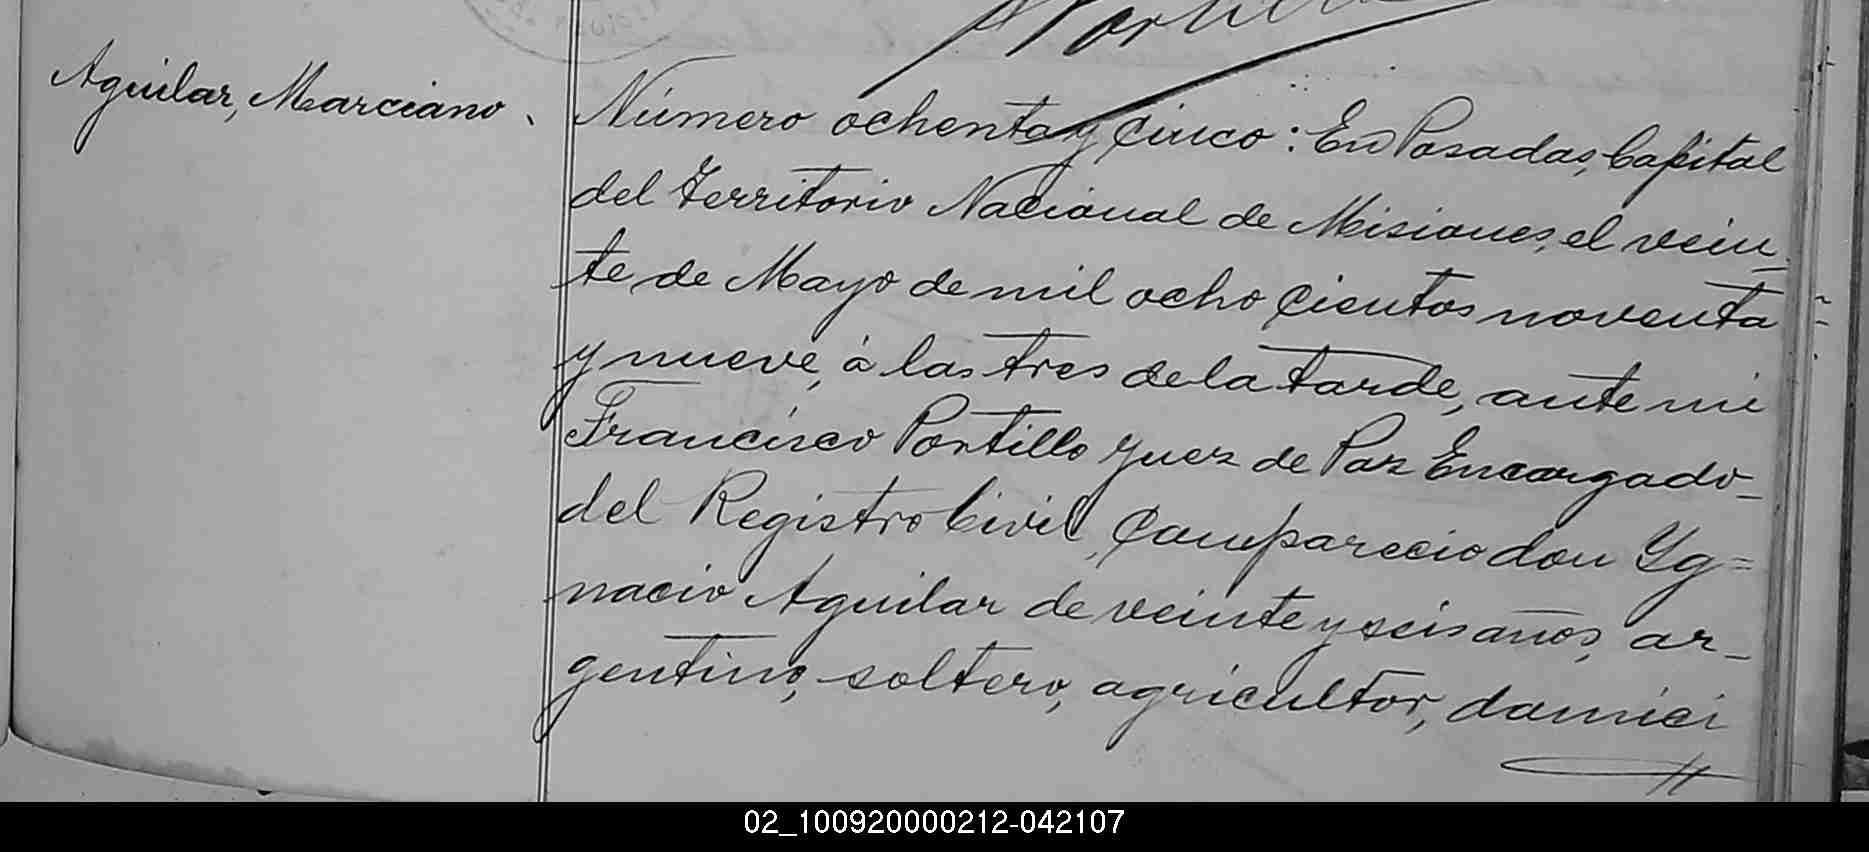 Portillo
Aguilar, Marciano.
Número ochenta y cinco: En Posadas, Capital
del Territorio Nacional de Misiones, el vein_
te de Mayo de mil ocho cientos noventa
y nueve, á las tres de la tarde, ante mi
Francisco Portillo Juez de Paz Encargado_
del Registro Civil, compareció don Yg=
nacio Aguilar de veinte y seis años, ar_
gentino, soltero, agricultor, domici
02_100920000212-042107